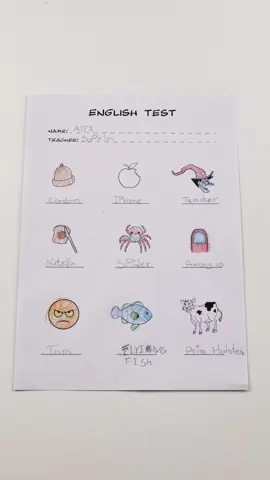 ENGLISH TEST
NAME: ALEX
TEACHER:
Condom IPhone Teacher
Nutella Spider Among us
Tom FLYING Prim Holstein
FISh